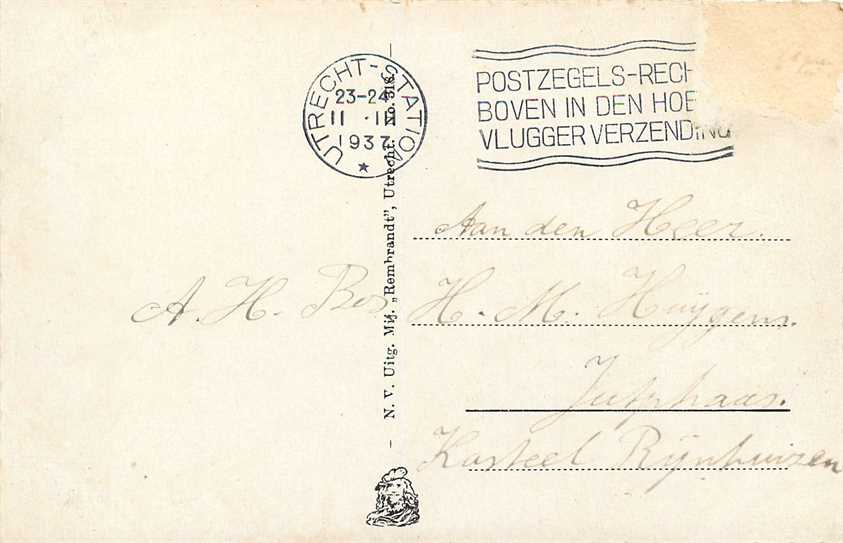 UTRECHT-STATION
23-24
11 ·II
1937
POSTZEGELS-RECH
BOVEN IN DEN HOE
VLUGGER VERZENDING
Aan den Heer.
A. H. Bos.
H. M. Huÿgens.
Jutphaas.
Kasteel Rÿnhuizen
— N. V. Uitg. Mij. „Rembrandt”, Utrecht. No. 318. —